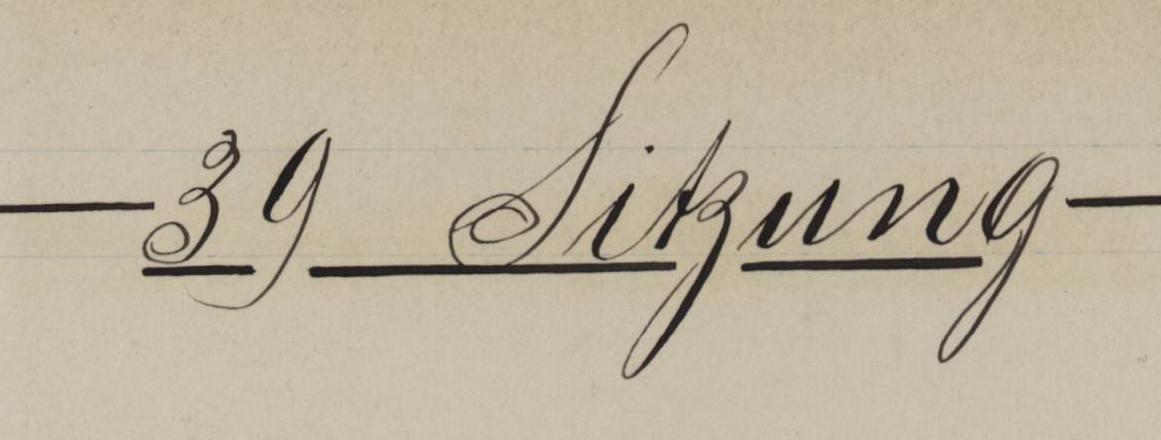 39 Sitzung